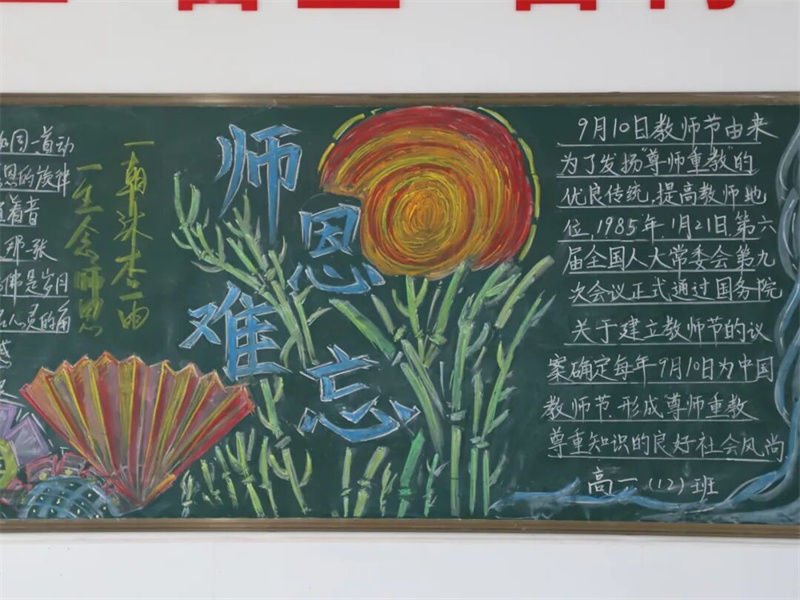 同一首动
恩的旋律
着昔
那张
佛是岁月
心灵的角
一朝沐杏雨
一生念师恩
师恩难忘
9月10日教师节由来
为了发扬“尊师重教”的
优良传统,提高教师地
位,1985年1月21日,第六
届全国人大常委会第九
次会议正式通过国务院
关于建立教师节的议
案确定每年9月10日为中国
教师节,形成尊师重教
尊重知识的良好社会风尚
高一(12)班